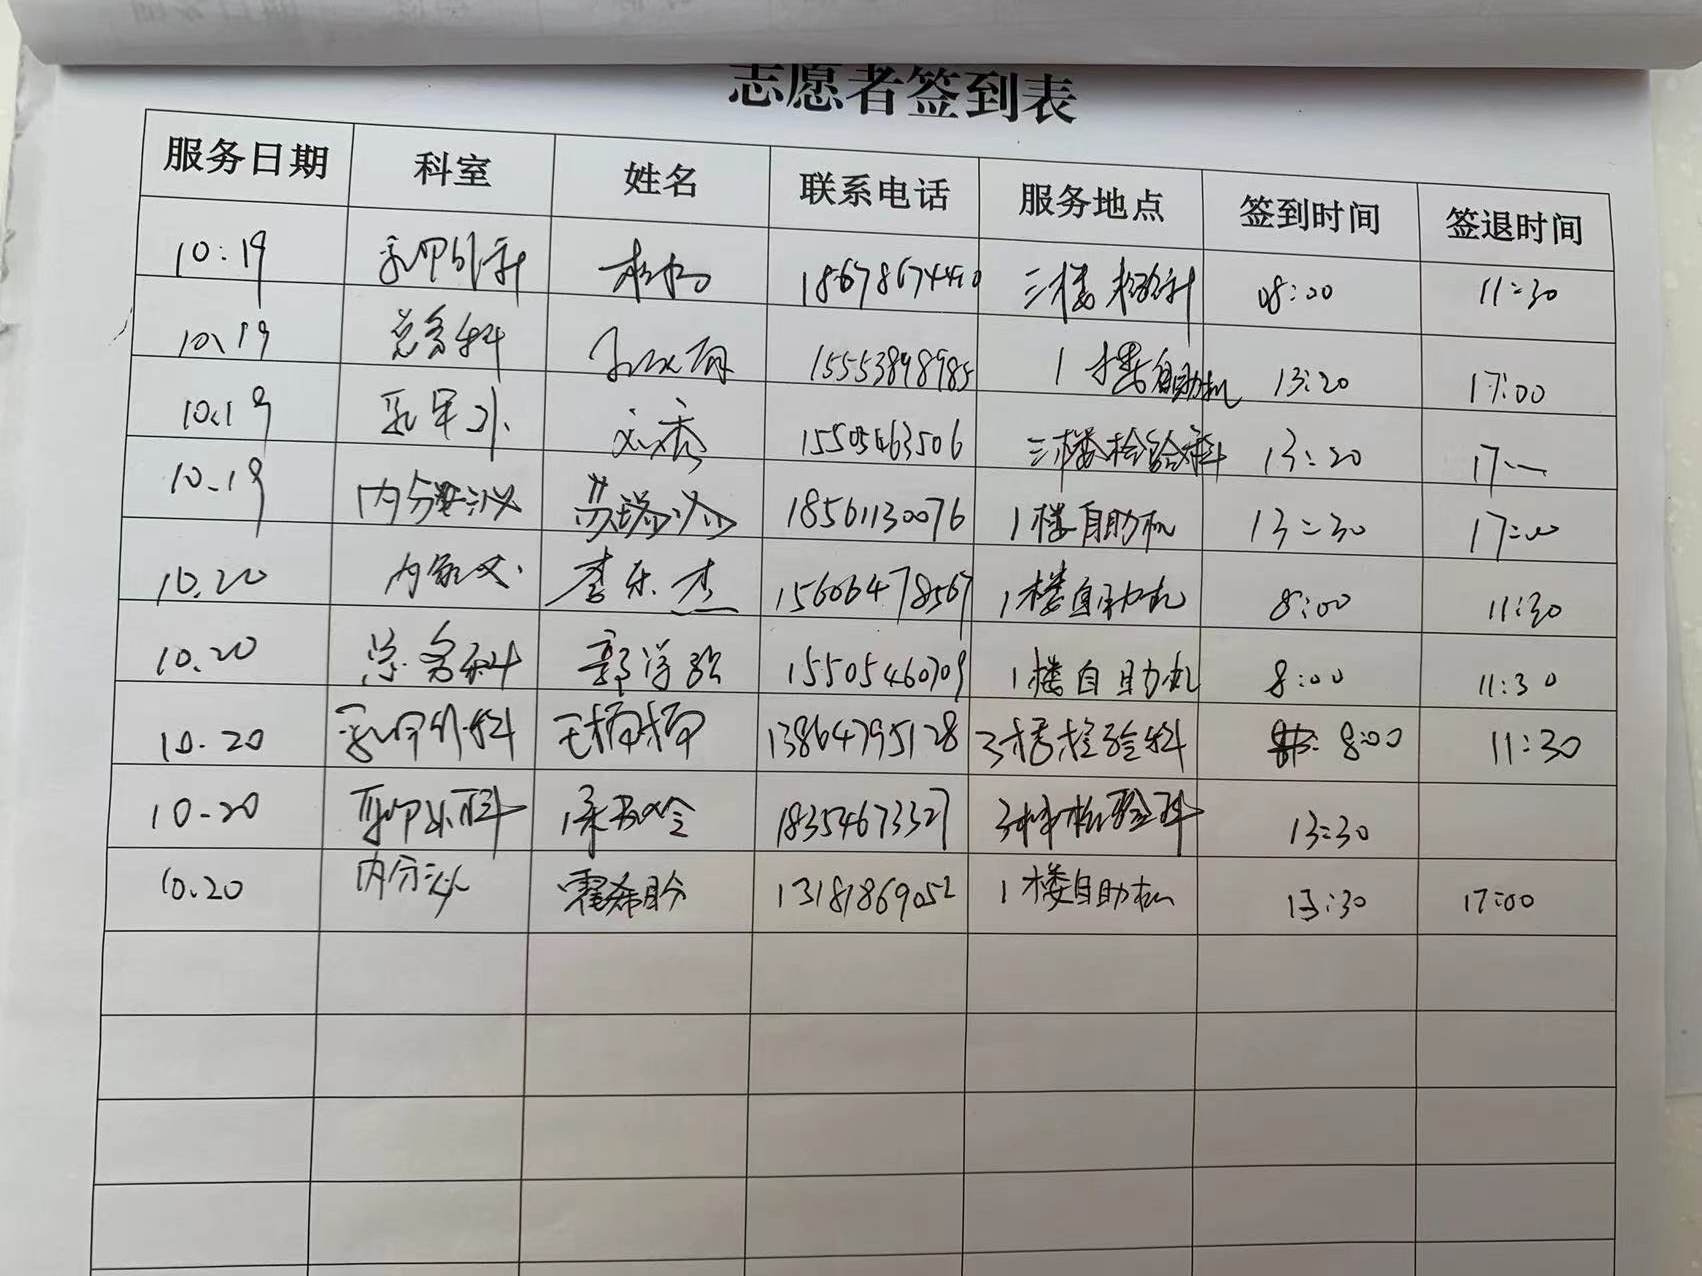 志愿者签到表
服务日期 科室 姓名 联系电话 服务地点 签到时间 签退时间
10:19 乳甲外科 18678674440 三楼检验科 08:00 11:30
10.19 总务科 15553898985 1楼自助机 13:20 17:00
10.19 乳甲外 15505463506 三楼检验科 13:20 17:—
10.19 内分泌 苏瑞 18561130076 1楼自助机 13:30 17:00
10.20 内分泌 李乐杰 15606478567 1楼自动机 8:00 11:30
10.20 总务科 郭 15505460709 1楼自助机 8:00 11:30
10.20 乳甲外科 王楠楠 13864795128 3楼检验科 8:00 11:30
10.20 乳甲外科 18354673327 3楼检验科 13:30
10.20 内分泌 霍希盼 13181869052 1楼自助机 13:30 17:00